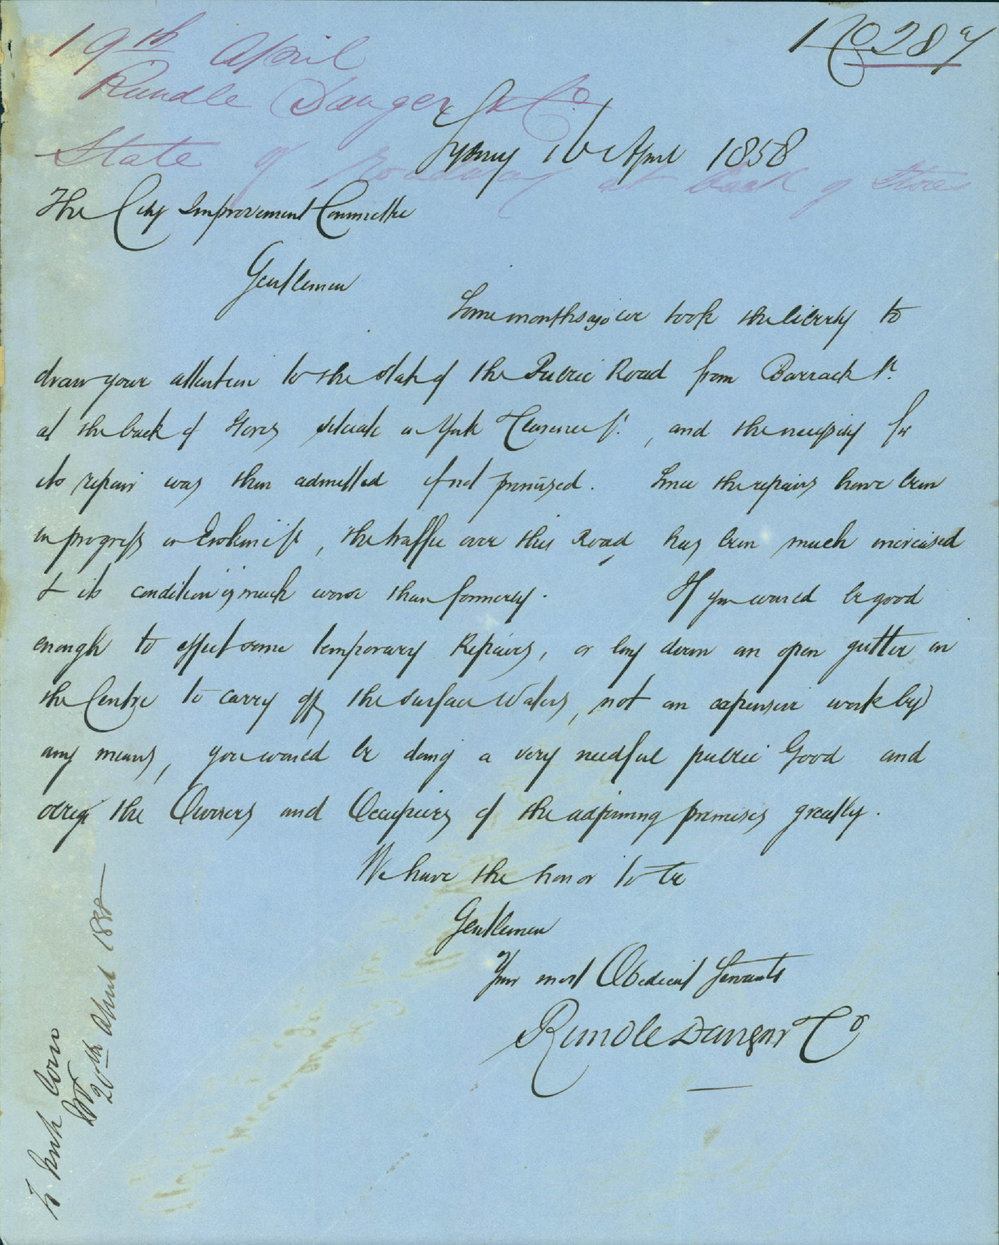 No 287
19th April
Rundle Dangar & Co
State of Roadway at back of Stores
Sydney 16 April 1858
The City Improvement Committee
Gentlemen
Some months ago we took the liberty to
draw your attention to the state of the Public Road from Barrack St.
at the back of Stores situate in York & Clarence St., and the necessity for
its repair was then admitted if not promised. Since the repairs have been
in progress in Erskine St, the traffic over this Road, has been much increased
& its condition is much worse than formerly. If you would be good
enough to effect some temporary Repairs, or lay down an open gutter in
the Centre to carry off the surface Waters, not an expensive work by
any means, you would be doing a very needful public Good and
oblige the Owners and Occupiers of the adjoining premises greatly.
We have the honor to be
Gentlemen
Your most Obedient Servants
Rundle Dangar & Co
To Imp Com
20th April 1858